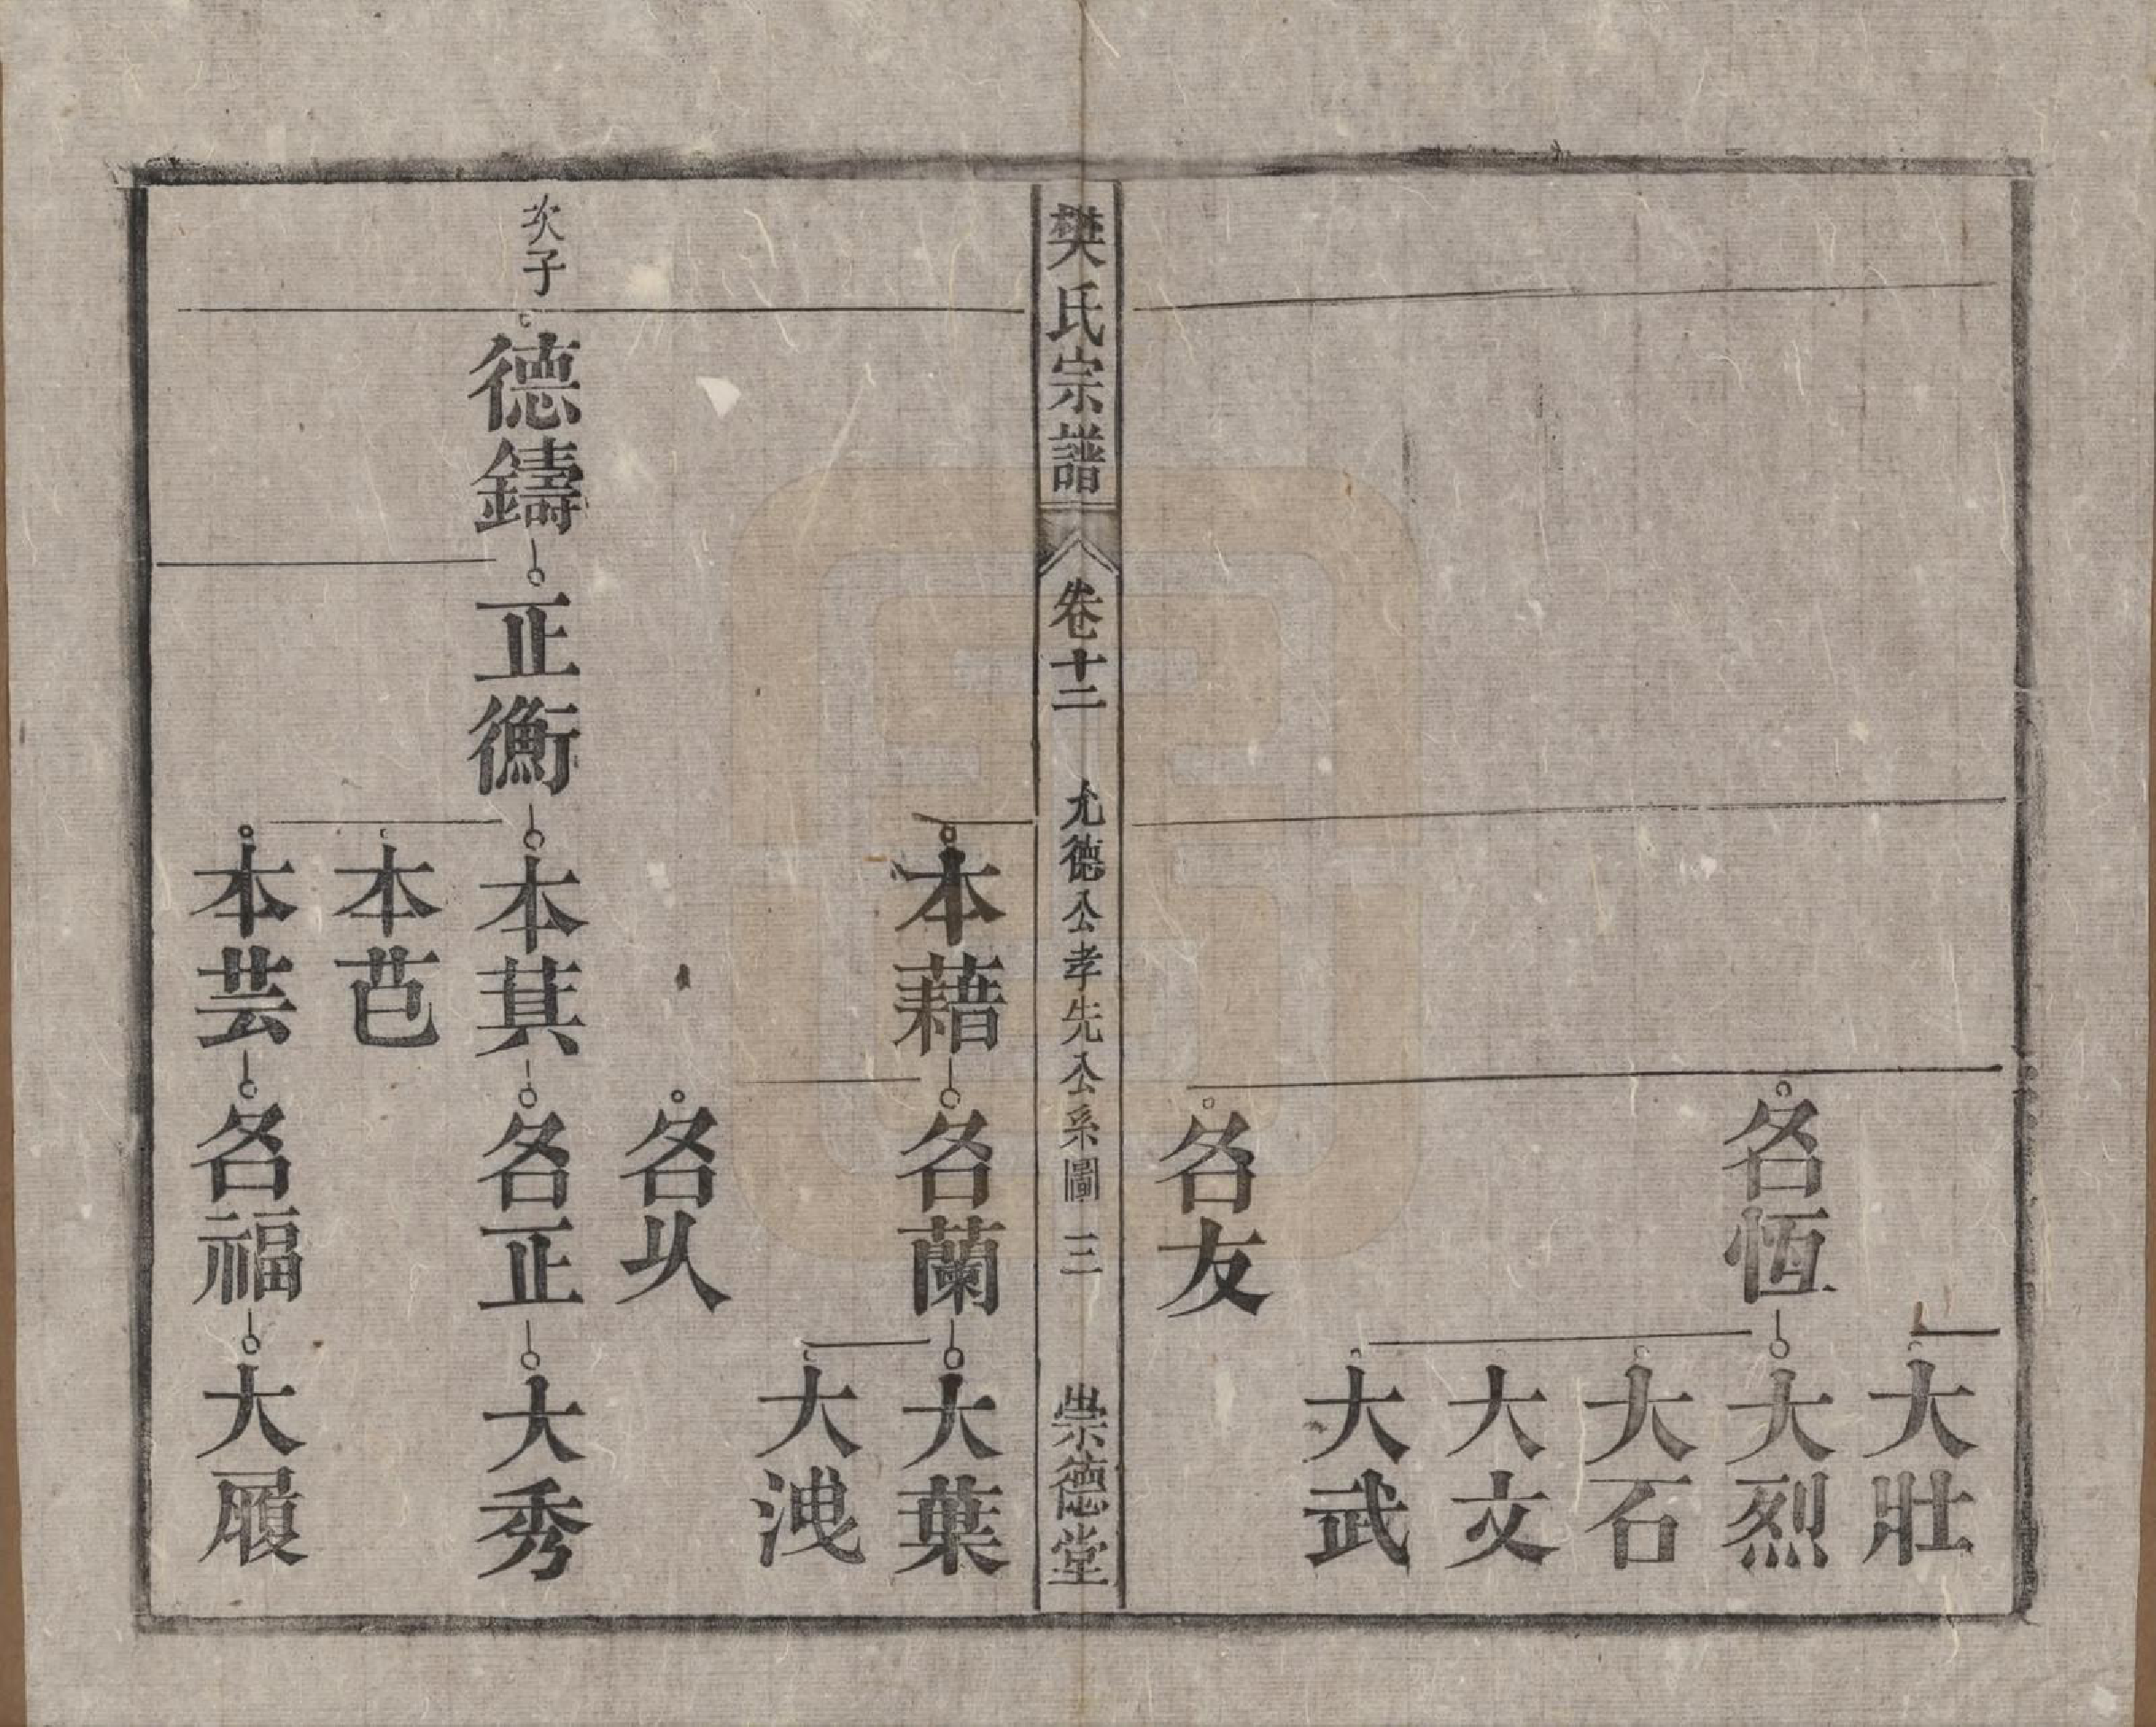 大壯
名恆
大烈
大石
大文
大武
名友
樊氏宗譜
卷十二
允德公孝先公系圖
三
崇德堂
本藉
名蘭
大葉
大洩
名㕥
次子
德鑄
正衡
本萁
名正
大秀
本芑
本芸
名福
大履